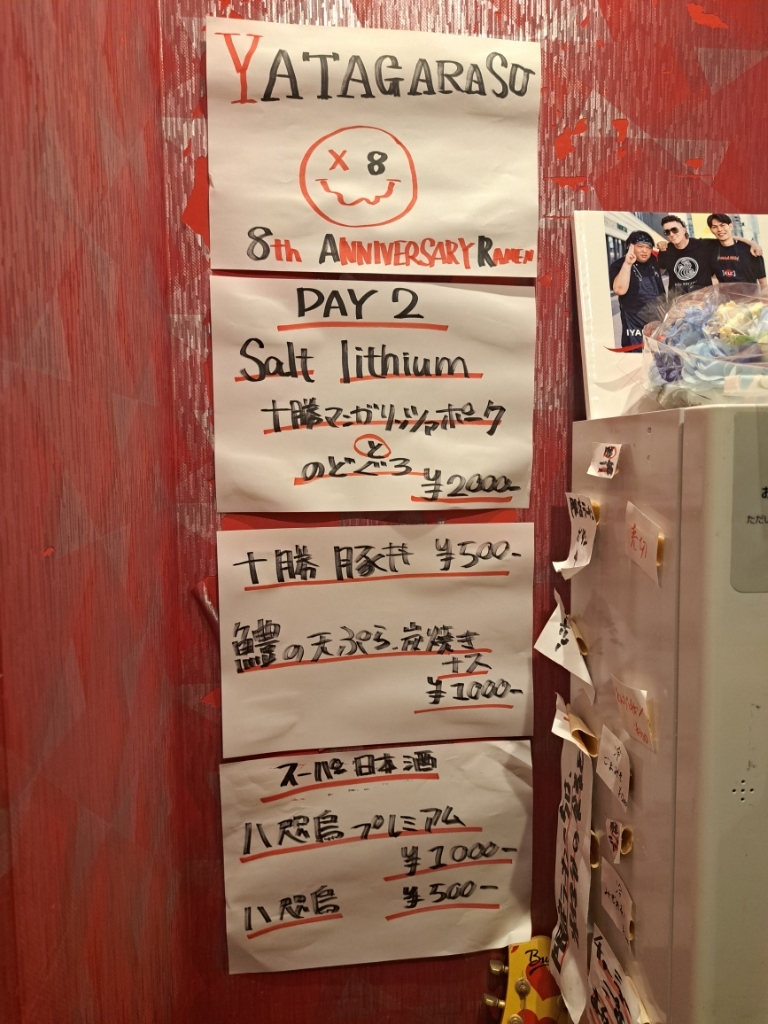 YATAGARASU
X 8
8th ANNIVERSARY RAMEN
DAY 2
Salt lithium
十勝マンガリッツァポーク
と
のどぐろ
¥2000-
十勝 豚丼 ¥500-
鱧の天ぷら、炭焼き
ナス
¥1000-
スーパー日本酒
八咫烏 プレミアム
¥1000-
八咫烏 ¥500-
IYA
売切